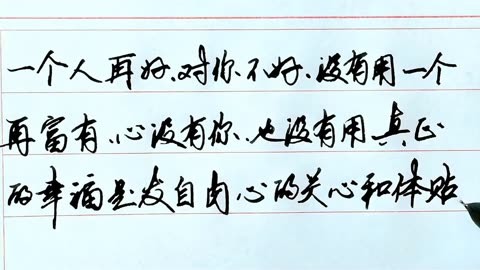 一个人再好、对你不好、没有用一个
再富有、心没有你、也没有用真正
的幸福是发自内心的关心和体贴